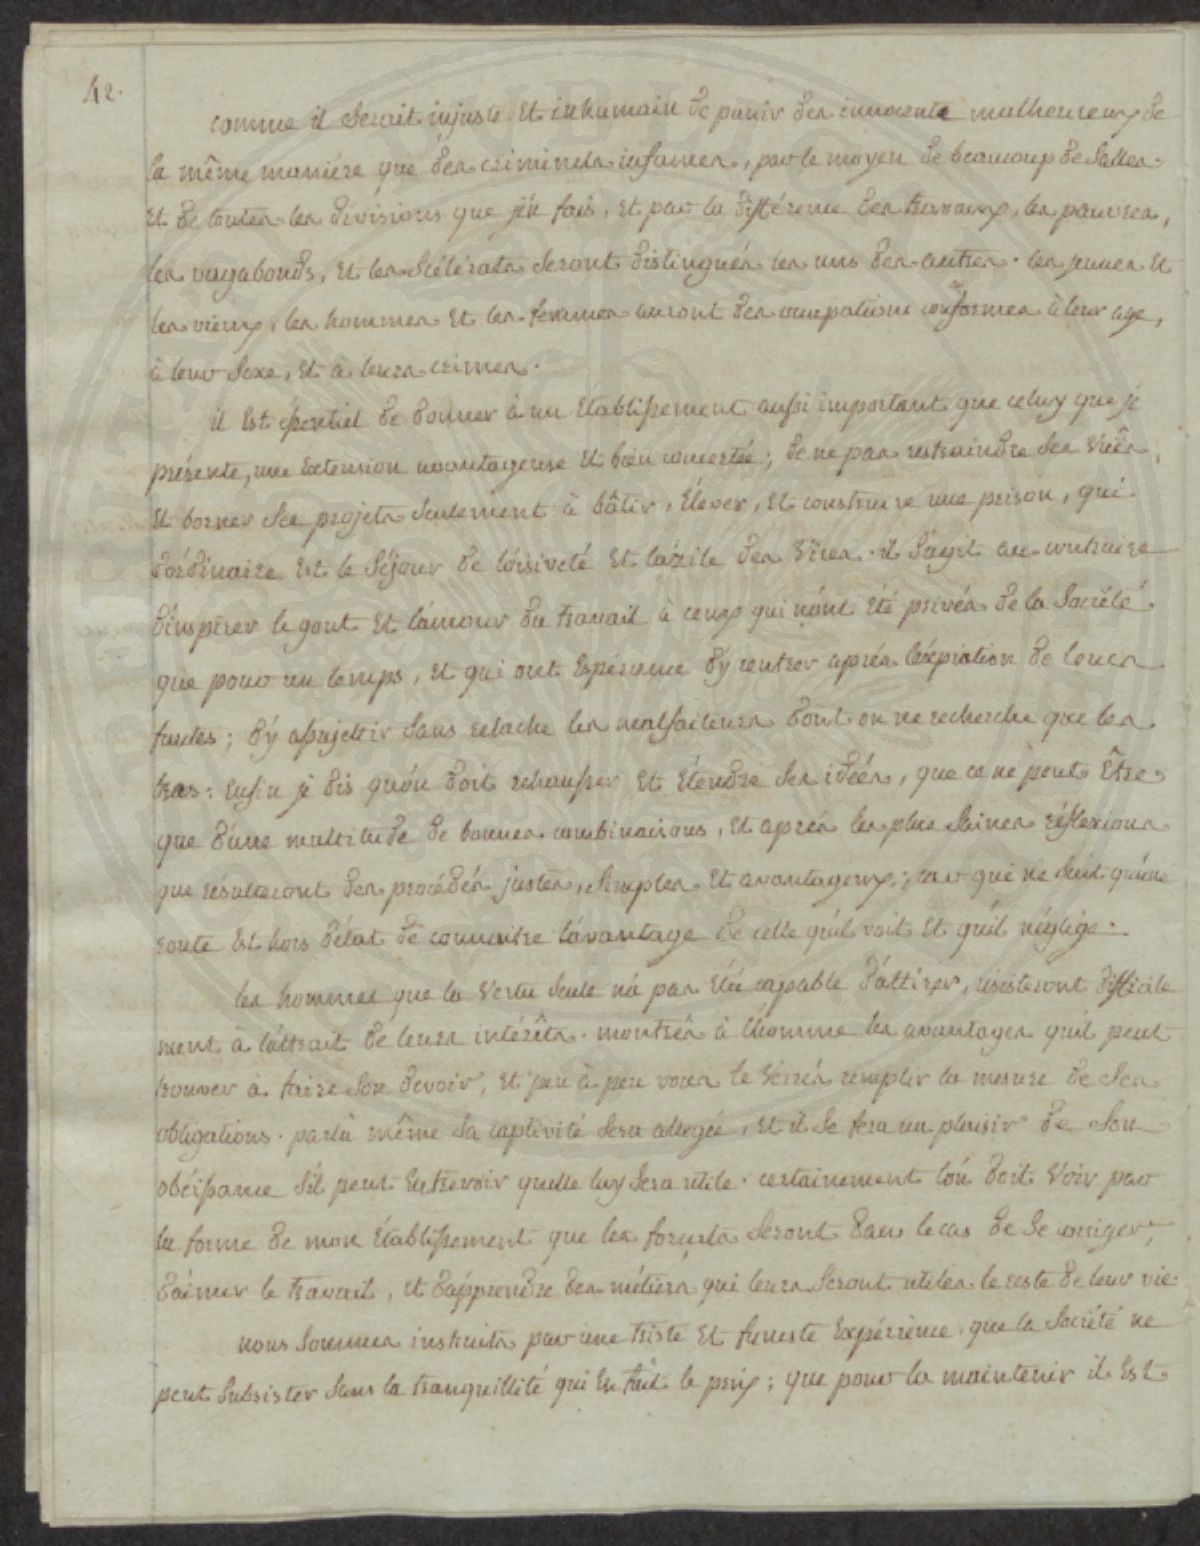 42.
comme il Serait injuste Et inhumain de punir des innocents malheureux de
la même maniére que des criminels infames, par le moyen de beaucoup de Salles
Et de toutes les divisions que j'en fais, Et par la différence des travaux, les pauvres,
les vagabonds, Et les Scélérats Seront distingués les uns des autres. les jeunes Et
les vieux, les hommes Et les femmes auront des occupations conformes à leur age,
à leur Sexe, Et à leurs crimes.
il Est éssentiel de donner à un Etablissement aussi important que celuy que je
présente, une Extension avantageuse Et bien concertée; de ne pas restraindre Ses Vuës,
Et borner Ses projets Seulement à bâtir, Élever, Et construire une prison, qui
d'ordinaire Est le Séjour de l'oisiveté Et l'azile des Vices. il S'agit au contraire
d'inspirer le gout Et l'amour du travail à ceux qui n'ont Eté privés de la Société
que pour un temps, Et qui ont Espérance d'y rentrer aprés l'expiation de leurs
fautes; d'y assujettir Sans relache les malfaiteurs dont on ne recherche que les
bras: Enfin je dis qu'on doit rehausser Et Étendre Ses idées, que ce ne peut Être
que d'une multitude de bonnes combinaisons, Et aprés les plus Saines réflexions
que résulteront des procédés justes, Simples Et avantageux; car qui ne Suit qu'une
route Est hors d'état de connaitre l'avantage de celle qu'il voit Et qu'il néglige.
les hommes que la Vertu Seule n'a pas Eté capable d'attirer, résisteront difficile
ment à l'attrait de leurs intérêts. montrés à l'homme les avantages qu'il peut
trouver à faire Son devoir, Et peu à peu vous le Verrés remplir la mesure de Ses
obligations. par là même Sa captivité Sera allegée, Et il Se fera un plaisir de Son
obéissance S'il peut Entrevoir qu'elle luy Sera utile. certainement l'on doit Voir par
la forme de mon Établissement que les forçats Seront dans le cas de Se corriger,
d'aimer le travail, Et d'apprendre des métiers qui leurs Seront utiles le reste de leur vie.
nous Sommes instruits par une triste Et funeste Expérience, que la Société ne
peut Subsister Sans la tranquillité qui En fait le prix; que pour la maintenir il Est